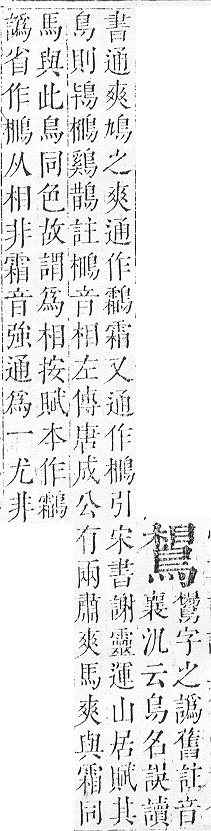 ⿱相鳥
鸘字之譌舊註音
襄汎云鳥名誤讀
書通爽鳩之爽通作鸘霜又通作⿰相鳥引宋書謝靈運山居賦其
鳥則鴇⿰相鳥鷄鵲註⿰相鳥音相左傳唐成公有兩肅爽馬爽與霜同
馬與此鳥同色故謂爲相按賦本作鸘
譌省作⿰相鳥从相非霜音強通爲一尤非